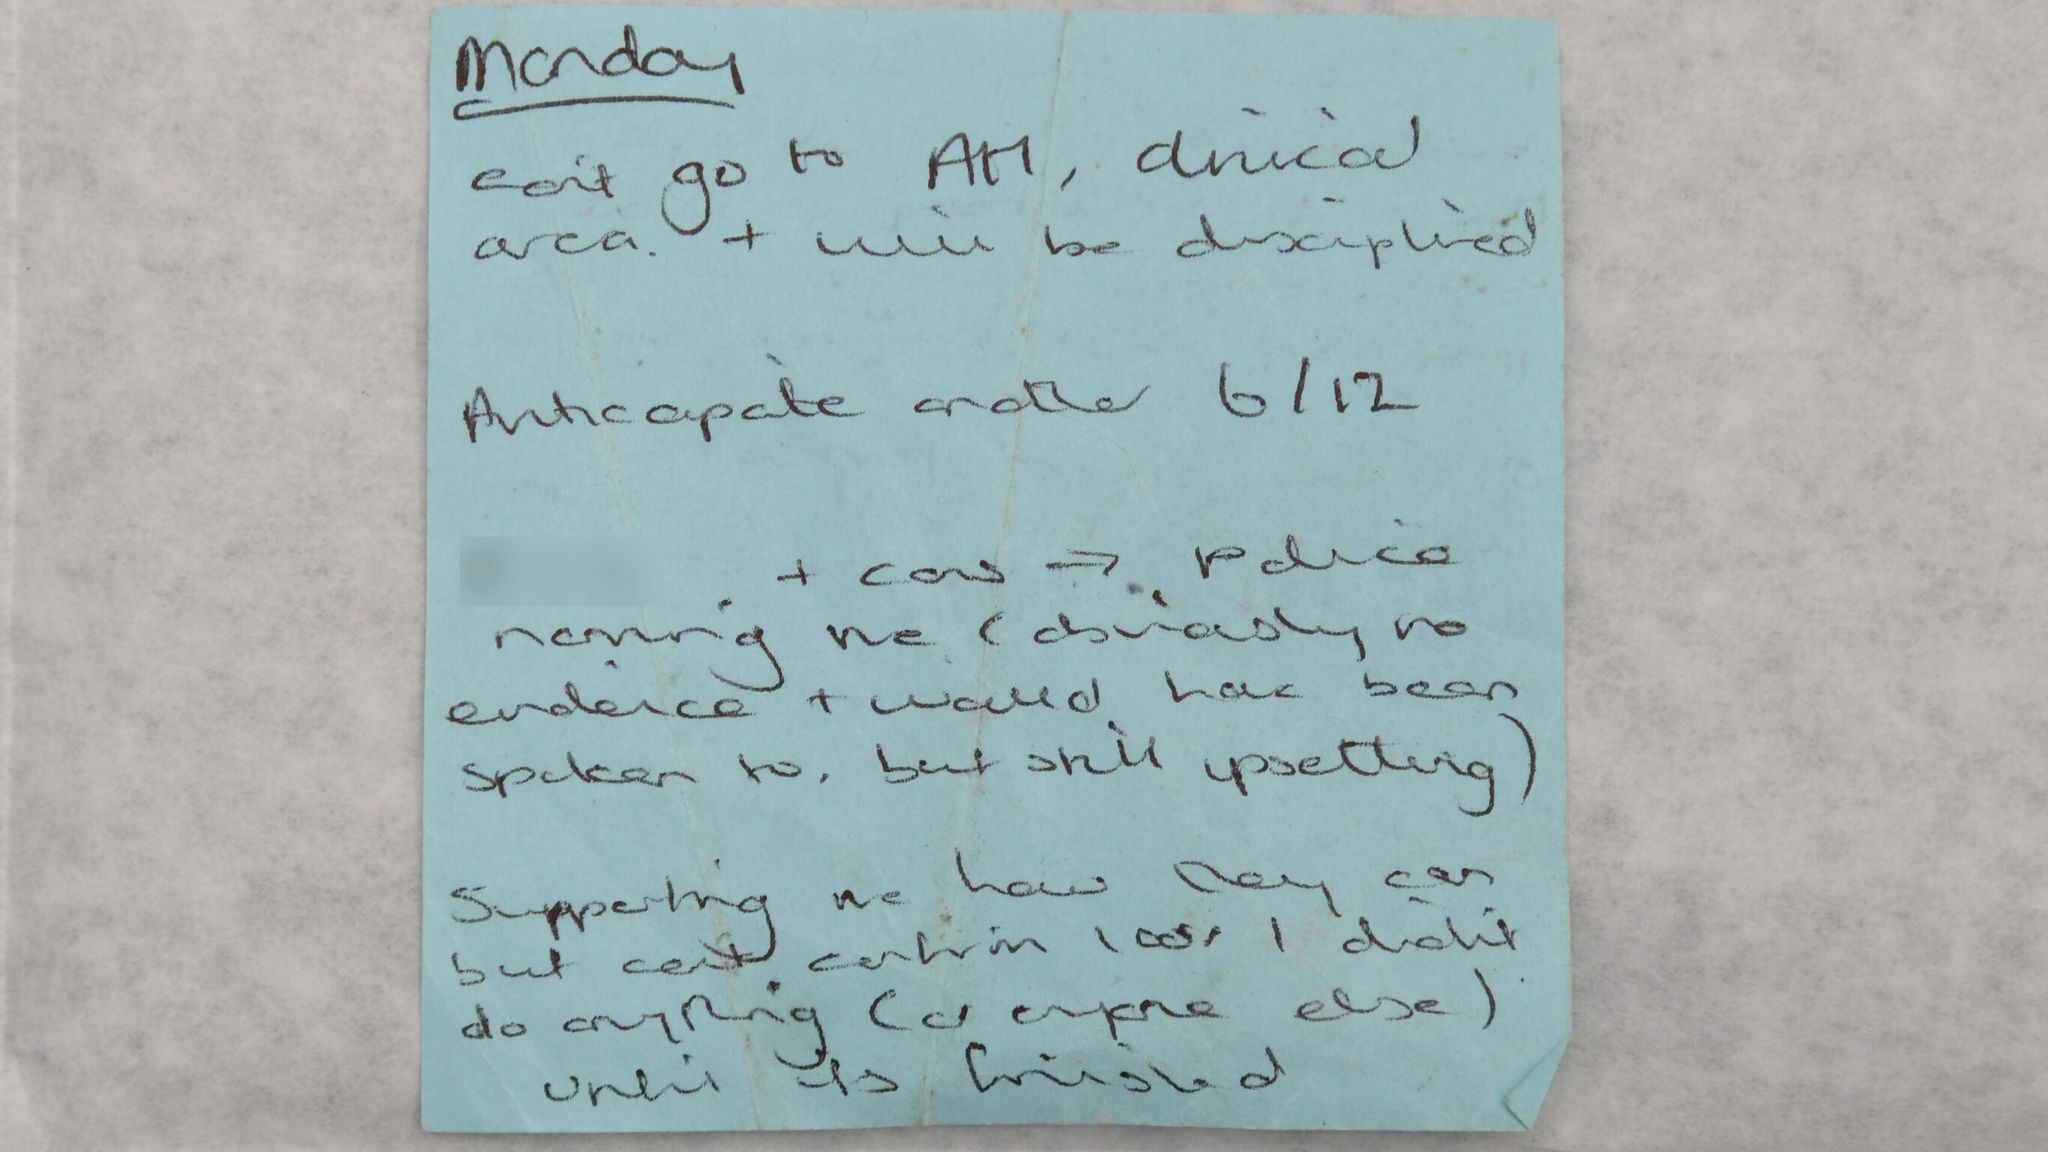 Monday
can't go to AH, clinical
area. + will be disciplined
Anticapate another 6/12
+ cons → Police
naming me (obviously no
evidence + would have been
spoken to, but still upsetting)
Supporting me how they can
but can't confirm 100% I didn't
do anything (or anyone else)
until its finished